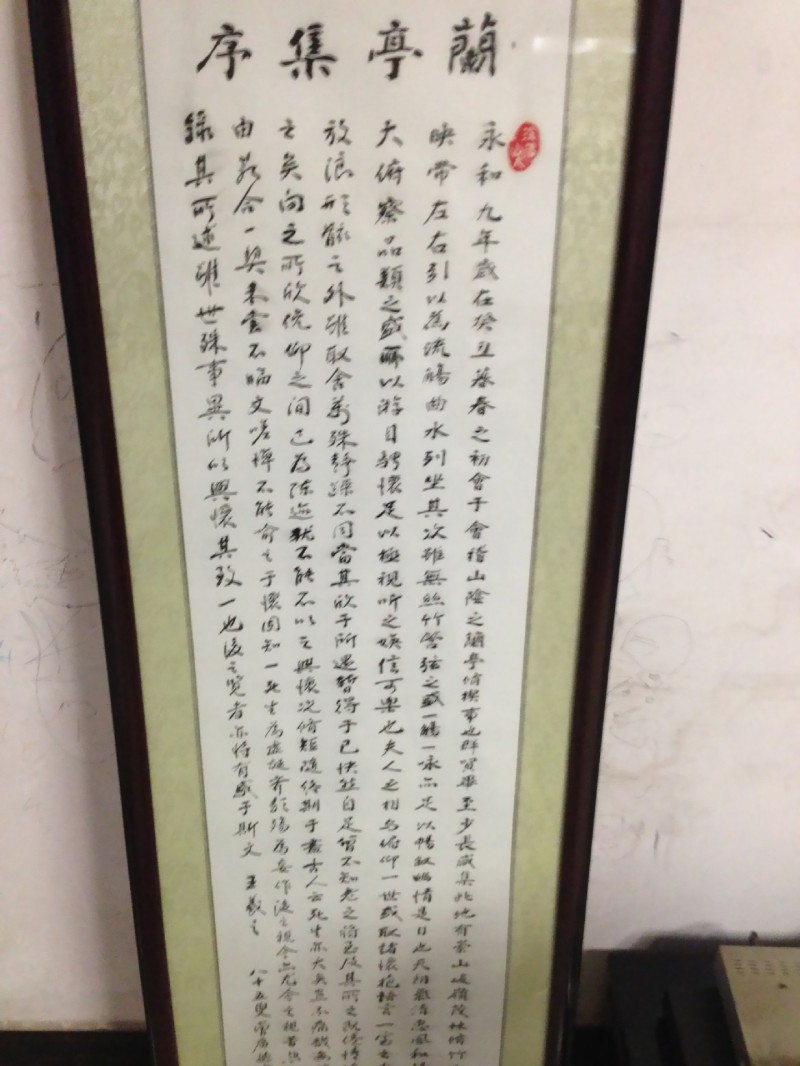 蘭亭集序
永和九年歲在癸丑暮春之初會于會稽山陰之蘭亭脩禊事也群賢畢至少長咸集此地有崇山峻嶺茂林脩竹
映帶左右引以為流觴曲水列坐其次雖無絲竹管弦之盛一觴一詠亦足以暢叙幽情是日也天朗氣清惠風和暢
大俯察品類之盛所以游目騁懷足以極視聽之娛信可樂也夫人之相與俯仰一世或取諸懷抱晤言一室之
放浪形骸之外雖取舍萬殊靜躁不同當其欣于所遇暫得于己快然自足曾不知老之將至及其所之既倦情
之矣向之所欣俛仰之間已為陳迹猶不能不以之興懷況脩短隨終期于盡古人云死生亦大矣豈不痛哉
由若合一契未嘗不臨文嗟悼不能喻之于懷固知一死生為虛誕齊彭殤為妄作後之視今亦尤今之視昔悲
錄其所述雖世殊事異所以興懷其致一也後之覽者亦將有感于斯文 王羲之 八十五叟